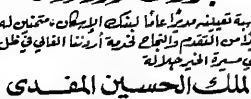 بة تعيينه مديراً عاماً لبنك الإسكان، متمنين له
من التقدم والنجاح لخدمة أردننا الغالي في ظل
مسيرة الخير جلالة
الملك الحسين المفدى